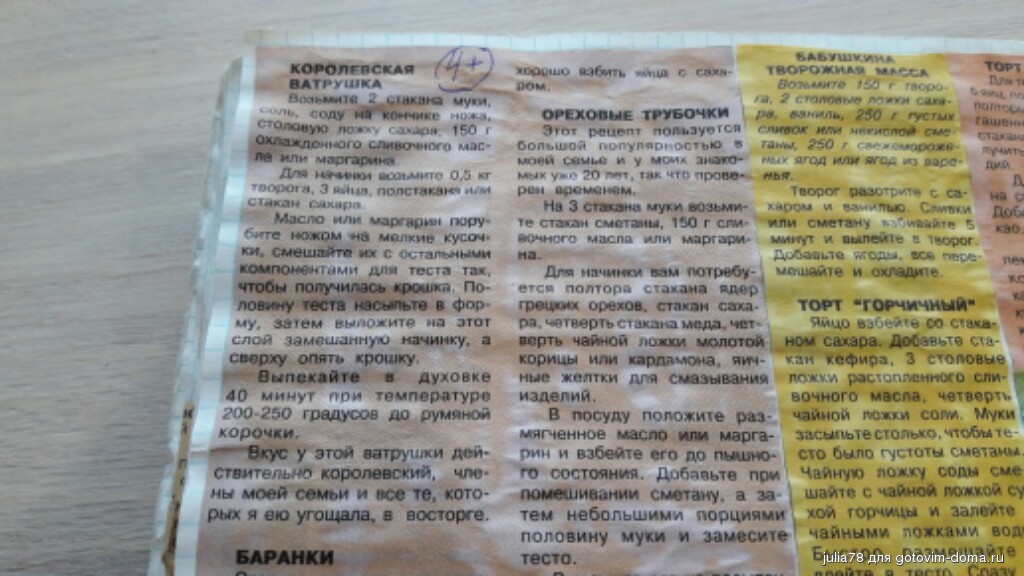 КОРОЛЕВСКАЯ
ВАТРУШКА
4+
Возьмите 2 стакана муки,
соль, соду на кончике ножа,
столовую ложку сахара, 150 г
охлажденного сливочного мас-
ла или маргарина.
Для начинки возьмите 0,5 кг
творога, 3 яйца, полстакана или
стакан сахара.
Масло или маргарин пору-
бите ножом на мелкие кусоч-
ки, смешайте их с остальными
компонентами для теста так,
чтобы получилась крошка. По-
ловину теста насыпьте в фор-
му, затем выложите на этот
слой замешанную начинку, а
сверху опять крошку.
Выпекайте в духовке
40 минут при температуре
200-250 градусов до румяной
корочки.
Вкус у этой ватрушки дей-
ствительно королевский, чле-
ны моей семьи и все те, кото-
рых я ею угощала, в восторге.
БАРАНКИ
хорошо взбить яйца с саха-
ром.
ОРЕХОВЫЕ ТРУБОЧКИ
Этот рецепт пользуется
большой популярностью в
моей семье и у моих знако-
мых уже 20 лет, так что прове-
рен временем.
На 3 стакана муки возьми-
те стакан сметаны, 150 г сли-
вочного масла или маргари-
на.
Для начинки вам потребу-
ется полтора стакана ядер
грецких орехов, стакан саха-
ра, четверть стакана меда, чет-
верть чайной ложки молотой
корицы или кардамона, яич-
ные желтки для смазывания
изделий.
В посуду положите раз-
мягченное масло или марга-
рин и взбейте его до пышно-
го состояния. Добавьте при
помешивании сметану, а за-
тем небольшими порциями
половину муки и замесите
тесто.
БАБУШКИНА
ТВОРОЖНАЯ МАССА
Возьмите 150 г творо-
га, 2 столовые ложки саха-
ра, ваниль, 250 г густых
сливок или некислой сме-
таны, 250 г свежемороже-
ных ягод или ягод из варе-
нья.
Творог разотрите с са-
харом и ванилью. Сливки
или сметану взбивайте 5
минут и вылейте в творог.
Добавьте ягоды, все пере-
мешайте и охладите.
ТОРТ "ГОРЧИЧНЫЙ"
Яйцо взбейте со стака-
ном сахара. Добавьте ста-
кан кефира, 3 столовые
ложки растопленного сли-
вочного масла, четверть
чайной ложки соли. Муки
засыпьте столько, чтобы те-
сто было густоты сметаны.
Чайную ложку соды сме
шайте с чайной ложкой су
хой горчицы и залейте
чайными ложками вод
размешайте
тесто. Сразу
ТОРТ
Для
5 яиц
julia78 для gotovim-doma.ru